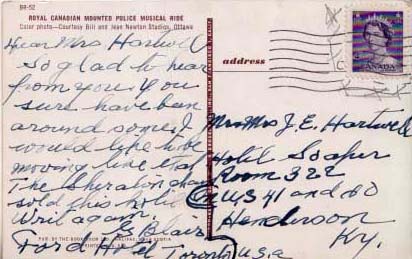 BR-52
ROYAL CANADIAN MOUNTED POLICE MUSICAL RIDE
Color photo—Courtesy Bill and Jean Newton Studios, Ottawa
Dear Mrs Hartwell
So glad to hear
from you. You
sure have been
around some, I
would like to be
moving like that
The Sheraton
sold this hotel
Writ again.
G Blair
Ford Hotel Toronto
address
CANADA
Mr Mrs J. E. Hartwell
Hotel Soaper
Room 322
On US 41 and 60
Henderson
Ky.
U.S.A